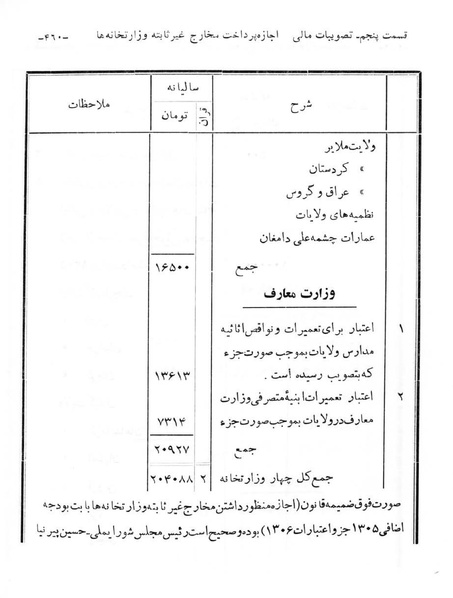 قسمت پنجم- تصویبات مالی   اجازه پرداخت مخارج غیر ثابته وزارتخانه‌ها   -۴۶۰-
شرح   سالیانه   ملاحظات
قران   تومان
ولایت ملایر
»  کردستان
»  عراق و گروس
نظمیه‌های ولایات
عمارات چشمه علی دامغان
جمع   ۱۶۵۰۰
وزارت معارف
۱   اعتبار برای تعمیرات و نواقص اثاثیه
مدارس ولایات بموجب صورت جزء
که بتصویب رسیده است .   ۱۳۶۱۳
۲   اعتبار تعمیرات ابنیهٔ متصرفی وزارت
معارف در ولایات بموجب صورت جزء   ۷۳۱۴
جمع   ۲۰۹۲۷
جمع کل چهار وزارتخانه   ۲   ۲۰۴۰۸۸
صورت فوق ضمیمه قانون (اجازه منظور داشتن مخارج غیر ثابته وزارتخانه‌ها بابت بودجه
اضافی ۱۳۰۵ جزو اعتبارات ۱۳۰۶) بوده و صحیح است رئیس مجلس شورایملی- حسین پیرنیا